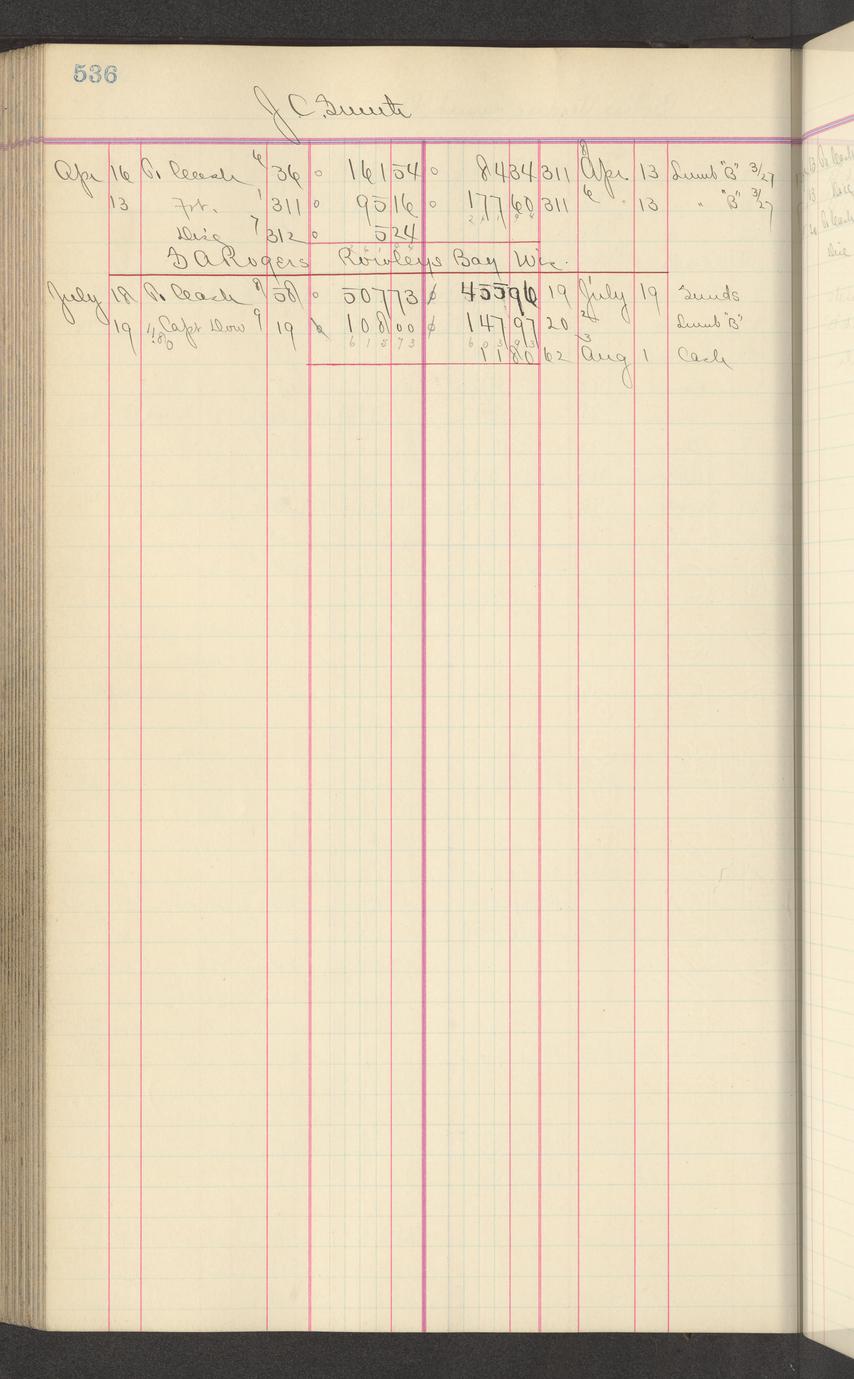 536
J C
Apr 16 P. Cash 4 36 0 161 54 0 84 34 311 8 Apr. 13 Lumb "B" 3/27
13 Frt. 1 311 0 95 16 0 177 60 311 6 " 13 " "B" 3/27
Disc 7 312 0 5 24
D A Rogers Rowleys Bay Wis.
July 18 P. Cash 8 58 0 507 73 455 96 19 July 19 Sunds
19 Capt Dow 9 19 108 00 147 97 20 2 Lumb "B"
615 73 603 93
11 80 62 3 Aug 1 Cash